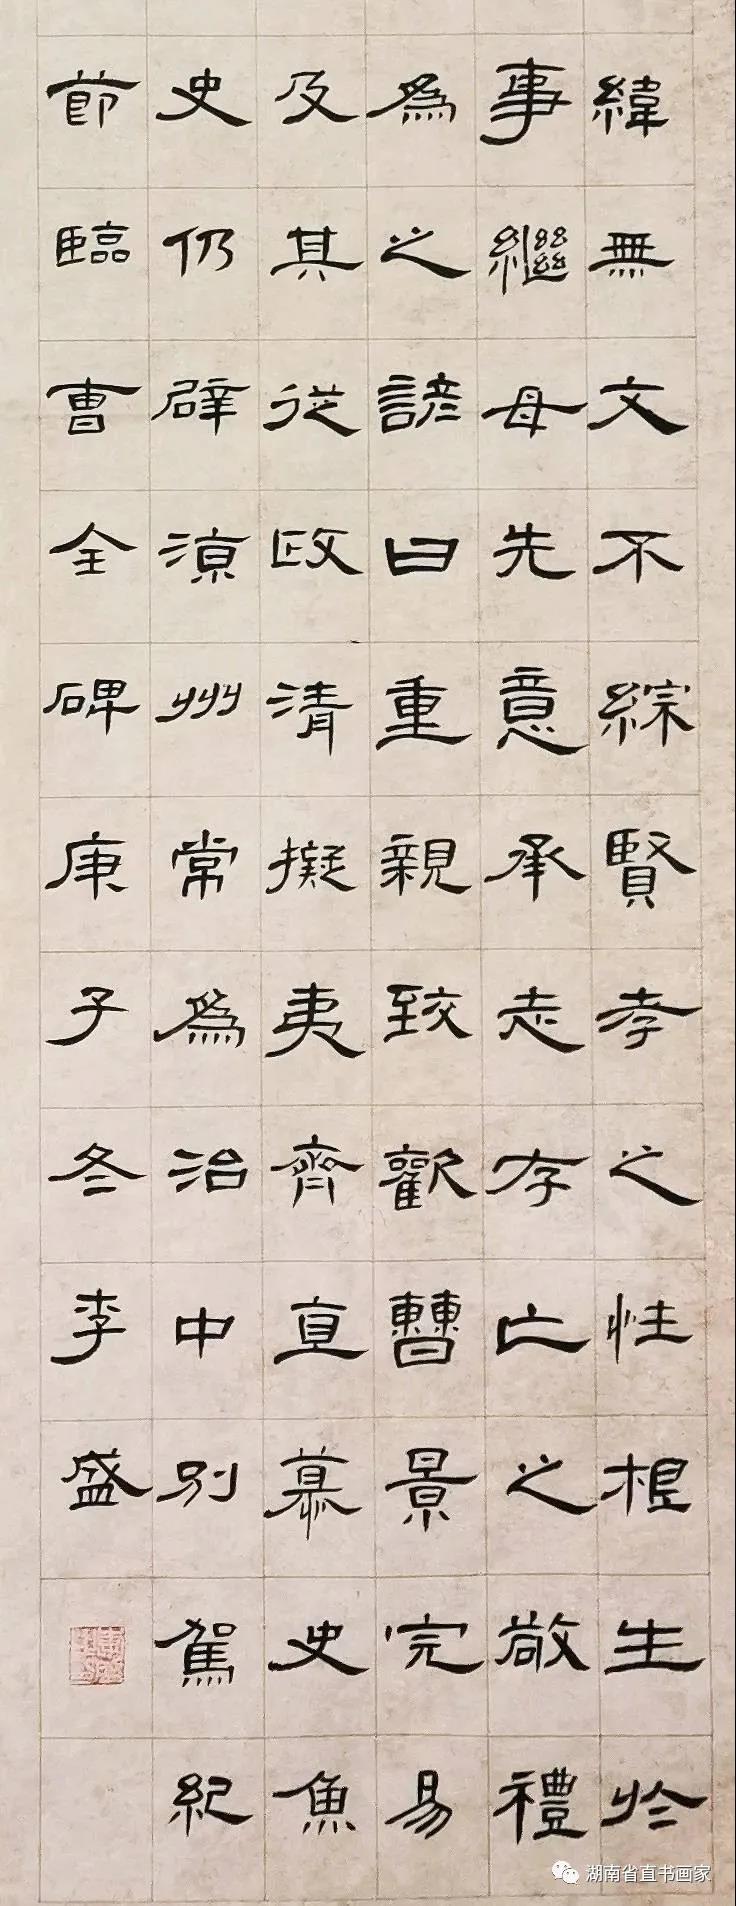 緯無文不綜賢孝之性根生於
事繼母先意承志存亡之敬禮
爲之諺曰重親致歡曹景完易
及其從政清擬夷齊直慕史魚
史仍辟涼州常爲治中別駕紀
節臨曹全碑庚子冬李盛
湖南省直书画家